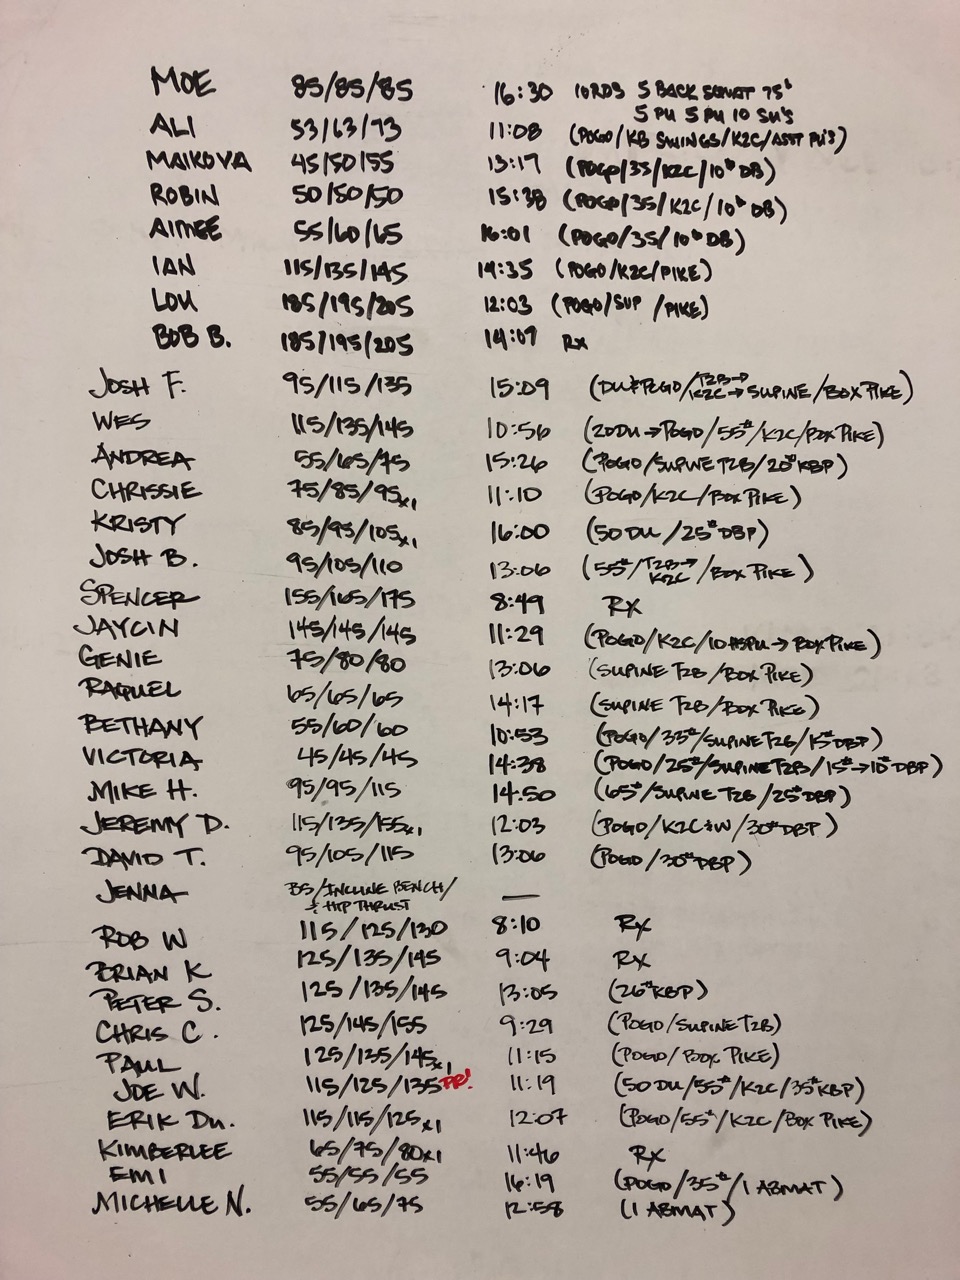 MOE 85/85/85 16:30 10RDS 5 BACK SQUAT 75#
5 PU 5 PU 10 SU'S
ALI 53/63/73 11:08 (POGO/KB SWINGS/K2C/ASST PU'S)
MAIKOVA 45/50/55 13:17 (POGO/35/K2C/10# DB)
ROBIN 50/50/50 15:38 (POGO/35/K2C/10# DB)
AIMEE 55/60/65 16:01 (POGO/35/10# DB)
IAN 115/135/145 14:35 (POGO/K2C/PIKE)
LOU 185/195/205 12:03 (POGO/SUP /PIKE)
BOB B. 185/195/205 14:07 Rx
JOSH F. 95/115/135 15:09 (DU&POGO/T2B→K2C→SUPINE/BOX PIKE)
WES 115/135/145 10:56 (20DU→POGO/55#/K2C/BOX PIKE)
ANDREA 55/65/75 15:26 (POGO/SUPINE T2B/20# KBP)
CHRISSIE 75/85/95x1 11:10 (POGO/K2C/BOX PIKE)
KRISTY 85/95/105x1 16:00 (50 DU/25# DBP)
JOSH B. 95/105/110 13:06 (55#/T2B→K2C/BOX PIKE)
SPENCER 155/165/175 8:49 RX
JAYCIN 145/145/145 11:29 (POGO/K2C/10 HSPU→BOX PIKE)
GENIE 75/80/80 13:06 (SUPINE T2B/BOX PIKE)
RAQUEL 65/65/65 14:17 (SUPINE T2B/BOX PIKE)
BETHANY 55/60/60 10:53 (POGO/35#/SUPINE T2B/15# DBP)
VICTORIA 45/45/45 14:38 (POGO/25#/SUPINE T2B/15#→10# DBP)
MIKE H. 95/95/115 14:50 (65#/SUPINE T2B/25# DBP)
JEREMY D. 115/135/155x1 12:03 (POGO/K2C&W/30# DBP)
DAVID T. 95/105/115 13:06 (POGO/30# DBP)
JENNA BS/INCLINE BENCH/ —
& HIP THRUST
ROB W 115/125/130 8:10 Rx
BRIAN K 125/135/145 9:04 Rx
PETER S. 125/135/145 13:05 (26# KBP)
CHRIS C. 125/145/155 9:29 (POGO/SUPINE T2B)
PAUL 125/135/145x1 11:15 (POGO/BOX PIKE)
JOE W. 115/125/135 PR! 11:19 (50 DU/55#/K2C/35# KBP)
ERIK DU. 115/115/125x1 12:07 (POGO/55#/K2C/BOX PIKE)
KIMBERLEE 65/75/80x1 11:46 Rx
EMI 55/55/55 16:19 (POGO/35#/1 ABMAT)
MICHELLE N. 55/65/75 12:58 (1 ABMAT)